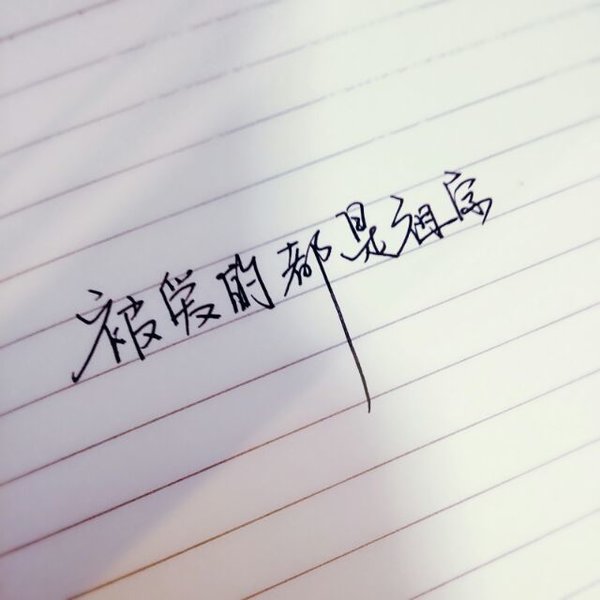 被爱的都是祖宗